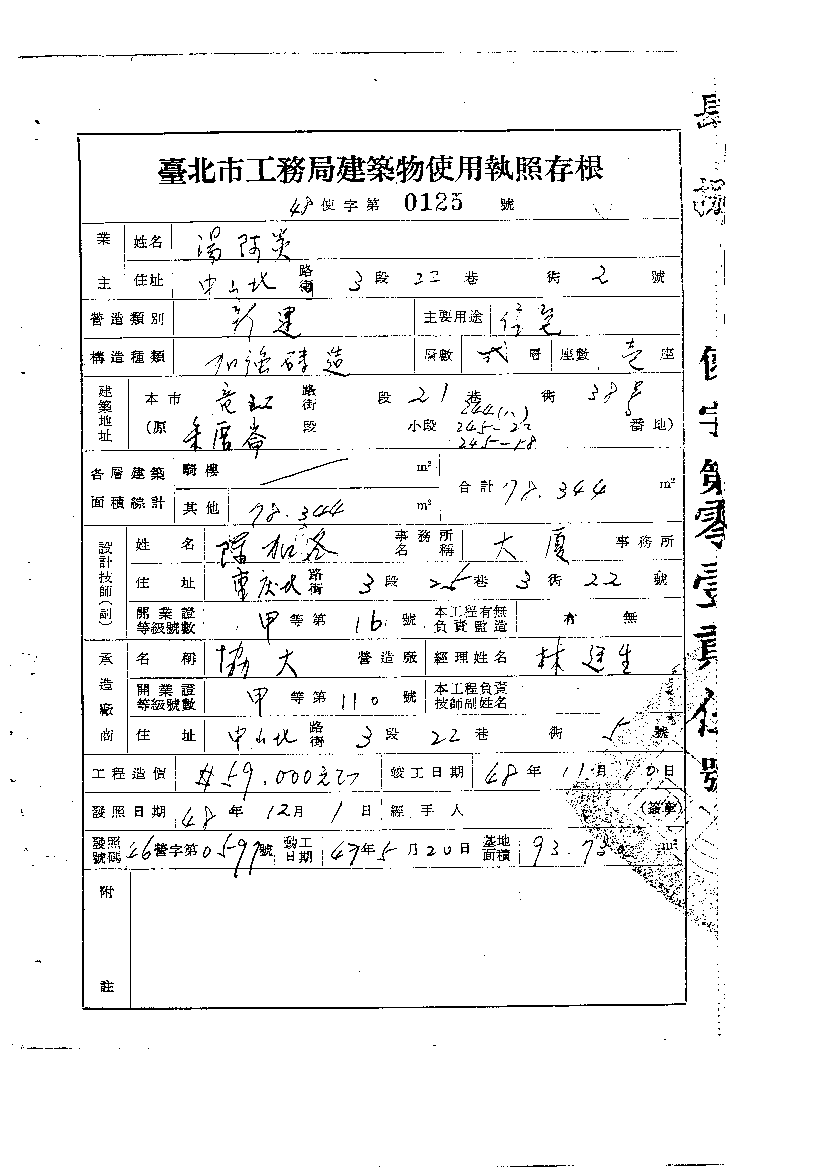 臺北市工務局建築物使用執照存根
48使字第 0125 號
業主 姓名 湯阿炎
住址 中山北路 3段 22巷 街 2號
營造類別 新建 主要用途 住宅
構造種類 加強磚造 層數 弍層 座數 壱座
建築地址 本市 龍江路街 段 21巷 街 38号
(原 朱厝崙 段 小段 244(八) 245-22 245-58 番地)
各層建築面積總計 騎樓 m² 合計 78.344 m²
其他 78.344 m²
設計技師(副) 姓名 事務所名稱 大厦 事務所
住址 重慶北路街 3段 25巷 3街 22號
開業證等級號數 甲等第 16號 本工程有無負責監造 有 無
承造廠商 名稱 協大 營造廠 經理姓名 林廷生
開業證等級號數 甲等第 110號 本工程負責技師副姓名
住址 中山北路街 3段 22巷 街 5號
工程造價 $59,000元 竣工日期 48年 11月 10日
發照日期 48年 12月 1日 經手人 (簽章)
發照號碼 46營字第0597號 動工日期 47年5月20日 基地面積 93.730 m²
附註
使字第零壹貳伍號